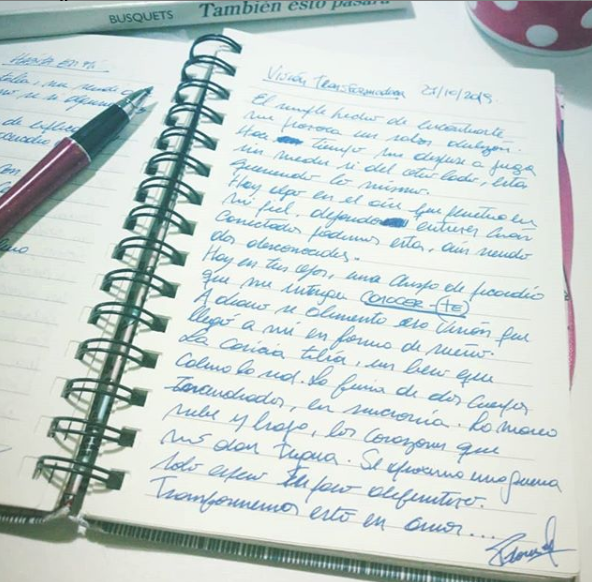 BUSQUETS
También esto pasará
Hasta en mi
Visión Transformadora 27/10/2019.
El simple hecho de encontrarte
me provoca un sabor dulzón.
Hace tiempo me dispuse a jugar
sin miedo, si del otro lado, esta
queriendo lo mismo.
Hay algo en el aire que penetra en
mi piel, dejando entrever cuan
conectados podemos estar, aún siendo
dos desconocidos.
Hay en tus ojos, una chispa de picardía
que me intriga CONOCER-TE
A diario se alimenta esa visión que
llegó a mi en forma de sueño.
La caricia tibia, un beso que
calma la sed. La furia de dos cuerpos
en sincronía. La marea
sube y baja, los corazones que
no dan tregua. Se aproxima una guerra
solo espero un paro definitivo.
Transformemos esto en amor...